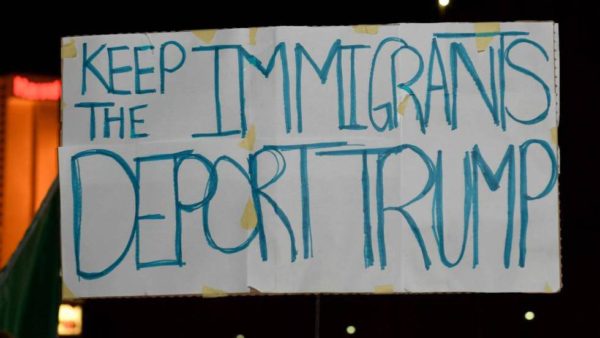 KEEP
THE IMMIGRANTS
DEPORT TRUMP